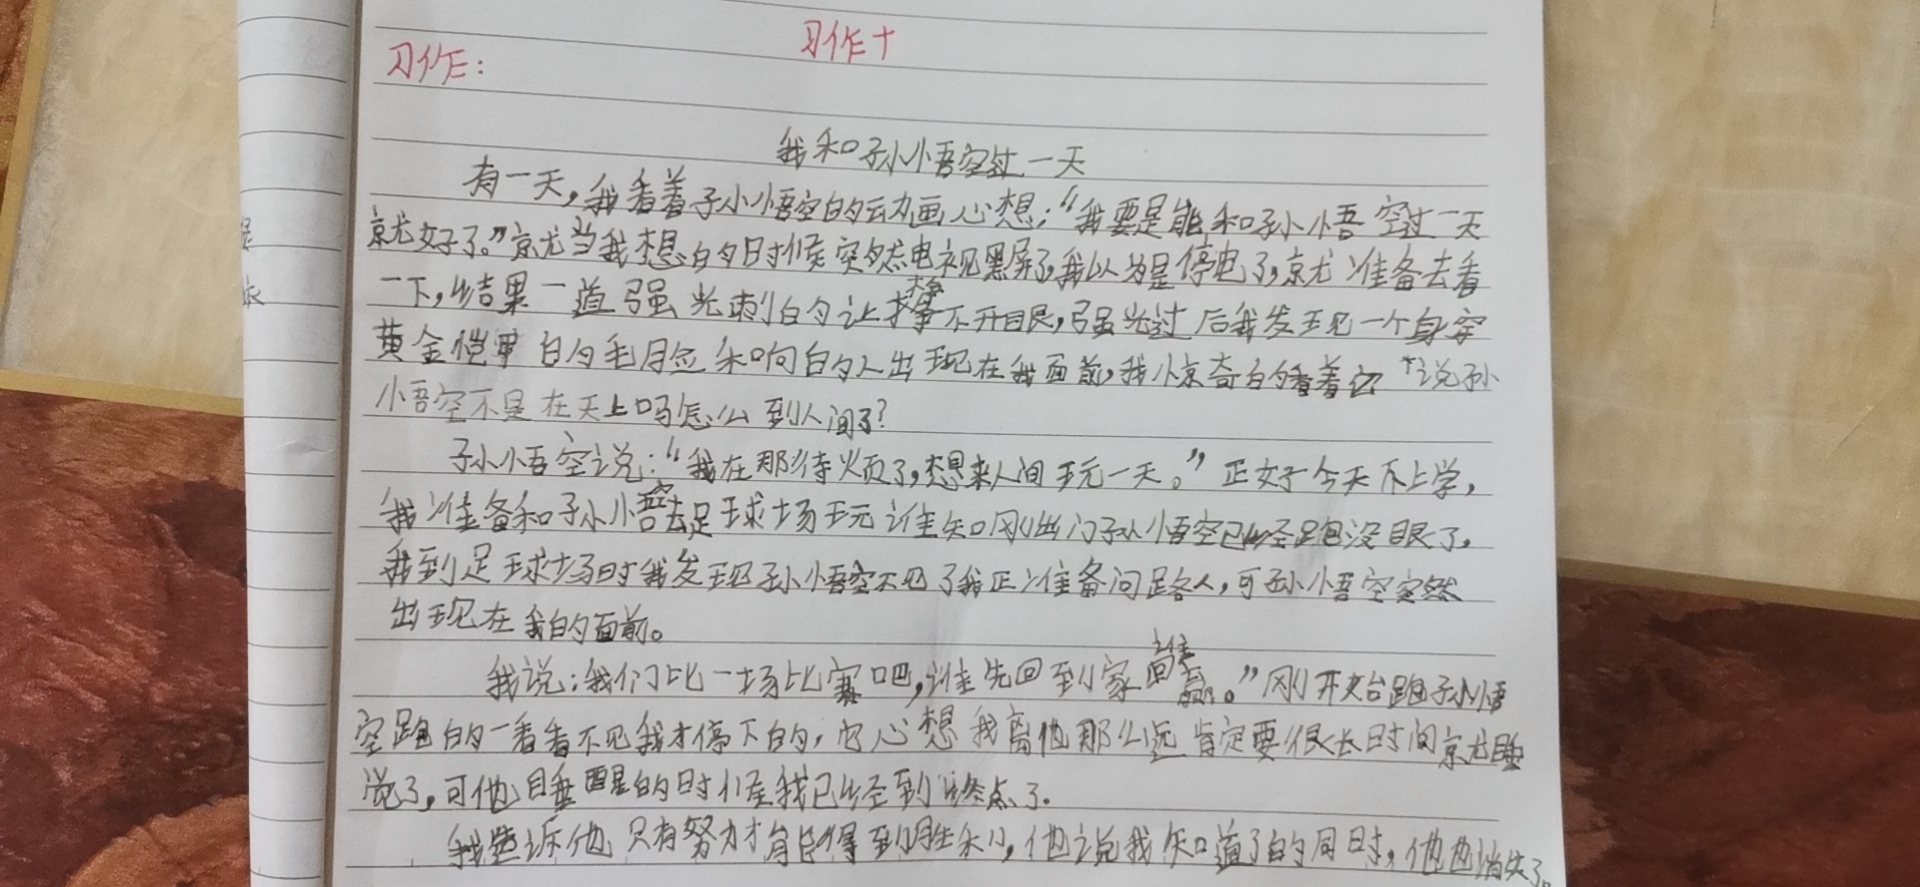 习作十
习作：
我和孙悟空过一天
有一天，我看着孙悟空的动画心想：“我要是能和孙悟空过一天
就好了。”就当我想的时候突然电视黑屏了，我以为是停电了，就准备去看
一下，结果一道强光刺的让我睁不开眼，强光过后我发现一个身穿
黄金恺甲的毛月佥和响的人出现在我面前，我惊奇的看着它 说孙
悟空不是在天上吗怎么到人间了？
孙悟空说：“我在那待烦了，想来人间玩一天。”正好今天不上学，
我准备和孙悟空去足球场玩谁知刚出门孙悟空已经跑没眼了。
我到足球场时我发现孙悟空不见了我正准备问路人，可孙悟空突然
出现在我的面前。
我说：我们比一场比赛吧，谁先回到家谁赢。”刚开始跑孙悟
空跑的一看看不见我才停下的，它心想我离他那么远肯定要很长时间就睡
觉了，可他睡醒的时候我已经到终点了.
我告诉他只有努力才能得到胜利，他说我知道了的同时，他也消失了。